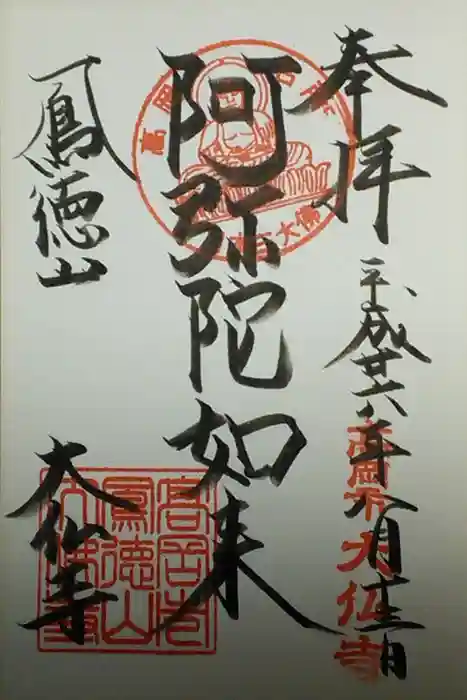 奉拝
平成廿六年八月十三日
高岡市大仏寺
阿弥陀如来
高岡
三大佛
鳳徳山
大仏寺
高岡市
鳳徳山
大佛寺